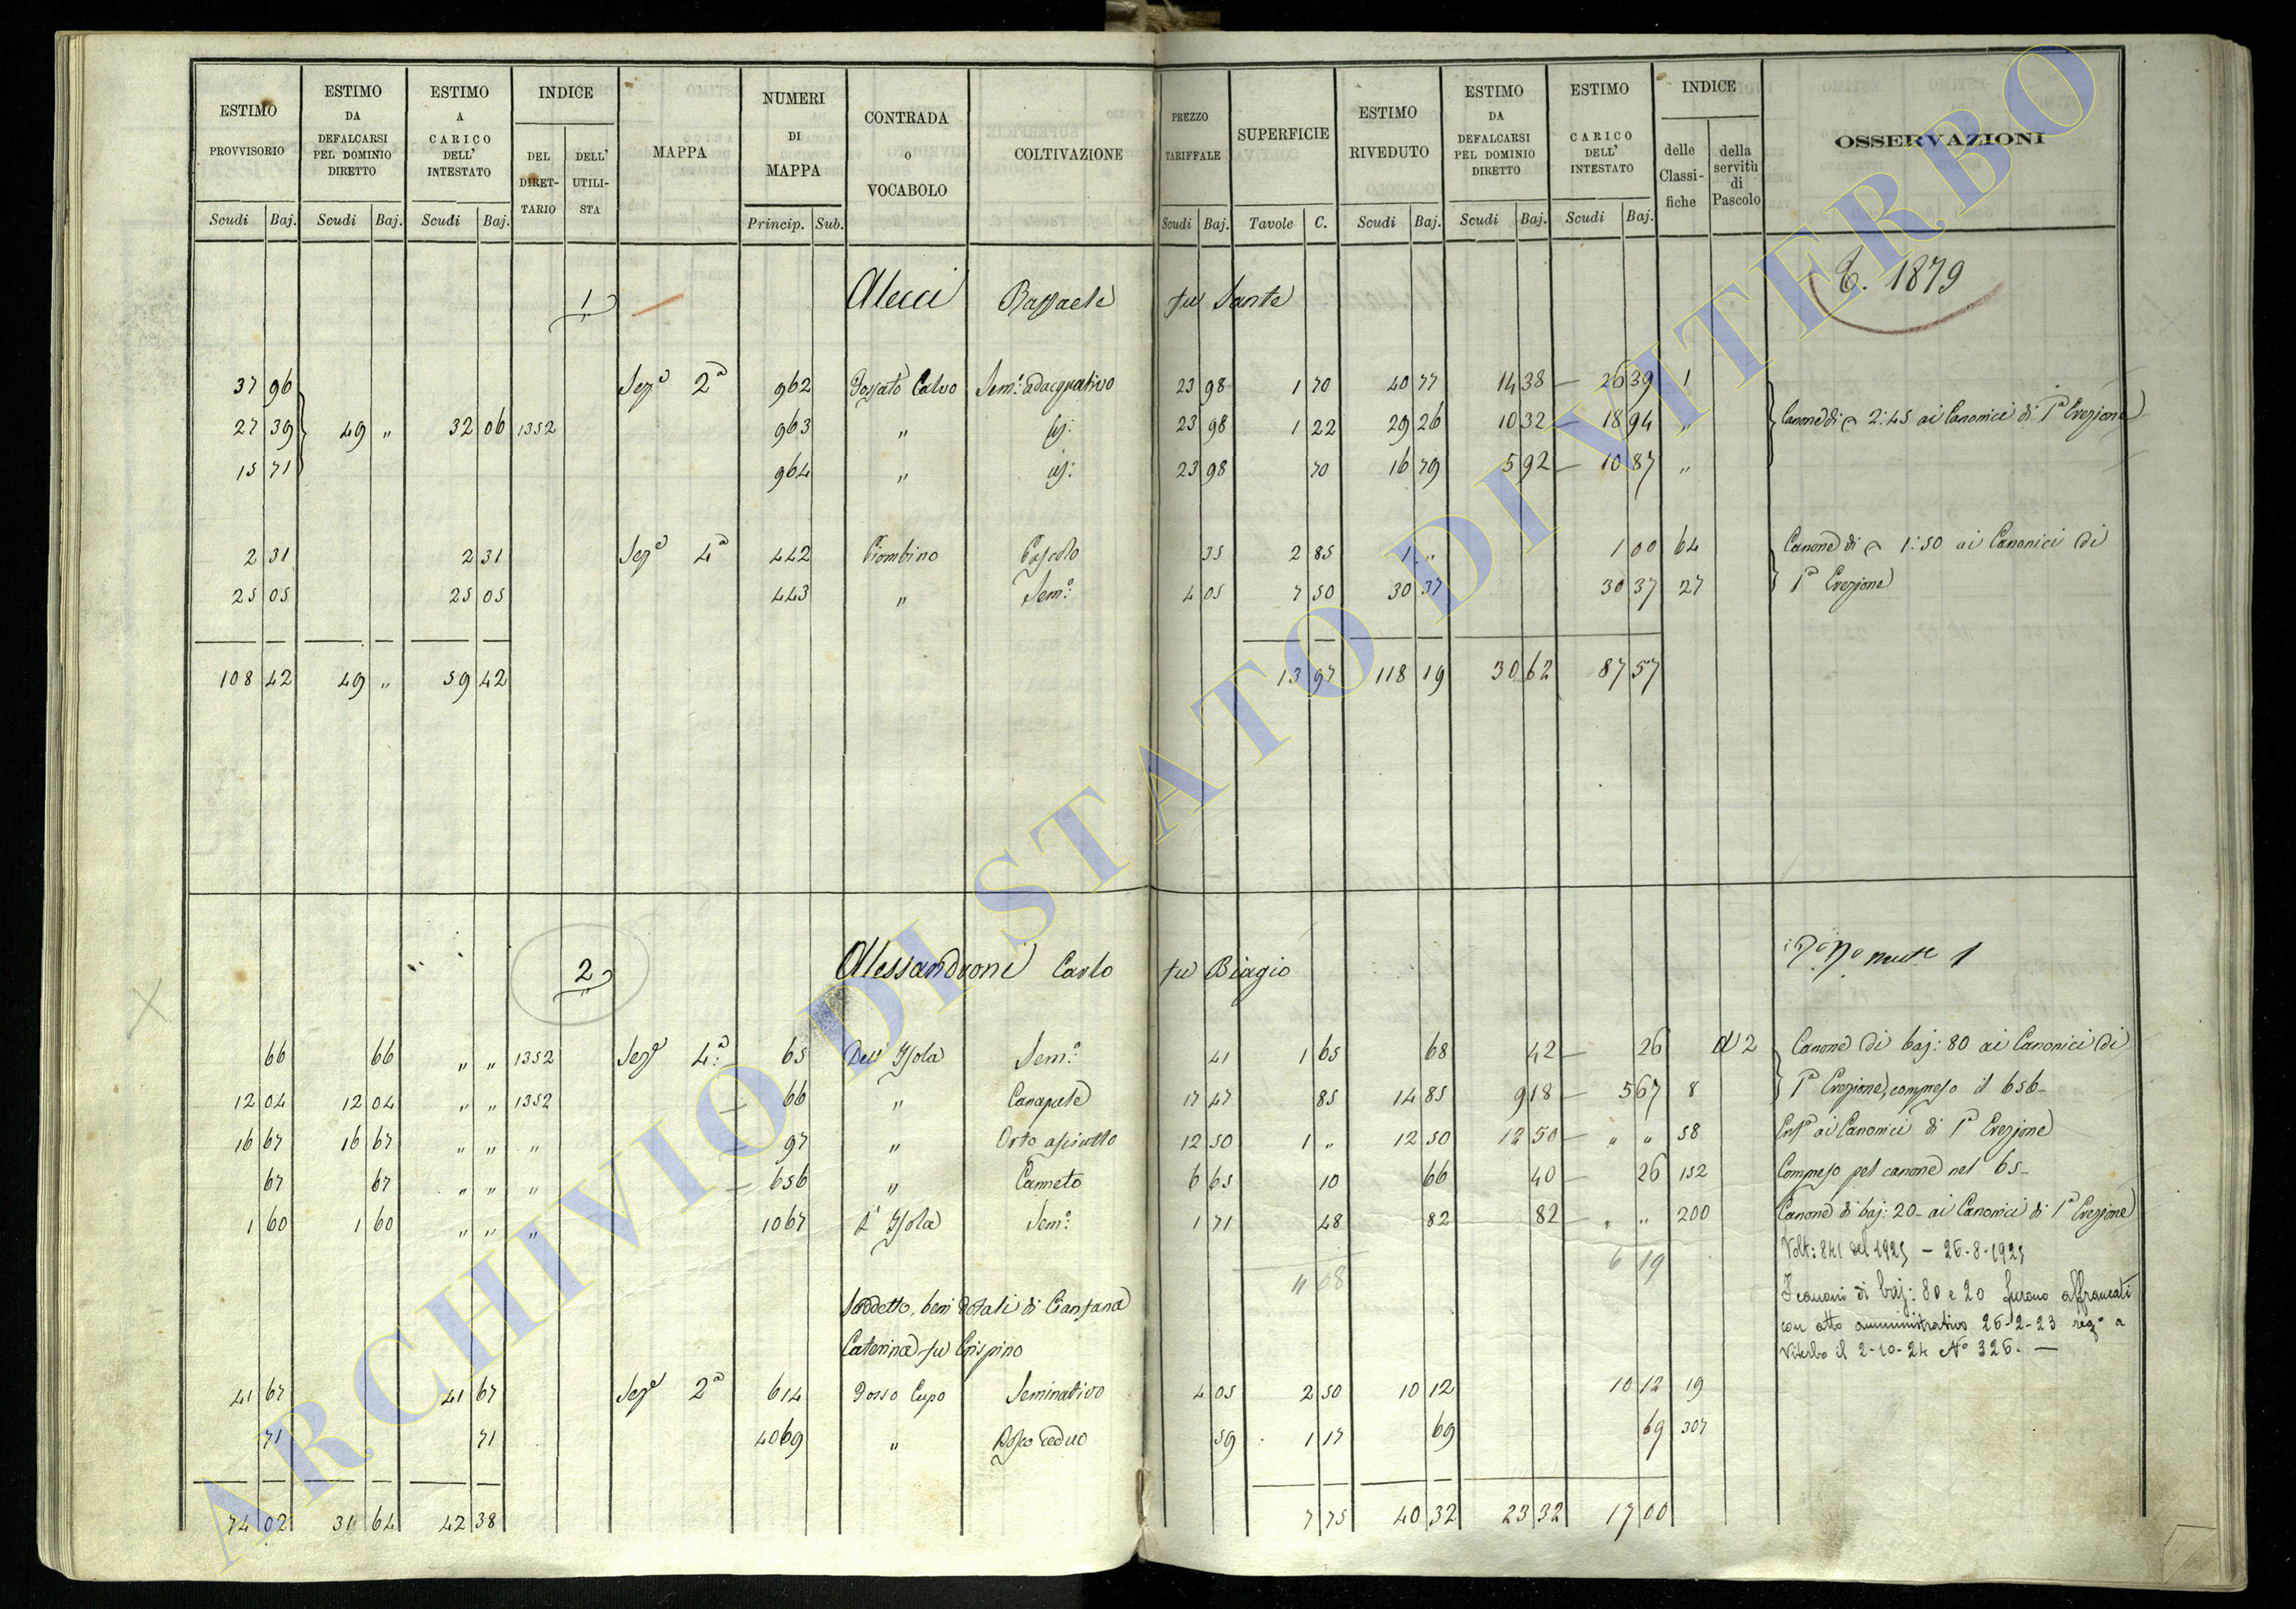 ESTIMO PROVVISORIO | ESTIMO DA DEFALCARSI PEL DOMINIO DIRETTO | ESTIMO A CARICO DELL' INTESTATO | INDICE | MAPPA | NUMERI DI MAPPA | CONTRADA O VOCABOLO | COLTIVAZIONE | PREZZO TARIFFALE | SUPERFICIE | ESTIMO RIVEDUTO | ESTIMO DA DEFALCARSI PEL DOMINIO DIRETTO | ESTIMO A CARICO DELL' INTESTATO | INDICE | OSSERVAZIONI
DEL DIRETTARIO | DELL' UTILISTA | delle Classifiche | della servitù di Pascolo
Scudi | Baj. | Scudi | Baj. | Scudi | Baj. | Princip. | Sub. | Scudi | Baj. | Tavole | C. | Scudi | Baj. | Scudi | Baj. | Scudi | Baj.
1 Alecci Raffaele fu Sante 1879
37 96 Sez.e 2a 962 Fossato Calvo Sem: adacquativo 23 98 1 70 40 77 14 38 — 26 39 1
27 39 49 " 32 06 1352 963 " 23 98 1 22 29 26 10 32 — 18 94 " Canone di 2:45 ai Canonici di 1a Erezione
15 71 964 " 23 98 70 16 79 5 92 — 10 87 "
2 31 2 31 Sez.e 4a 442 Piombino Pascolo 35 2 85 1 " 1 00 64 Canone di 1:50 ai Canonici di
25 05 25 05 443 " Sem:o 4 05 7 50 30 37 30 37 27 1a Erezione
108 42 49 " 59 42 13 97 118 19 30 62 87 57
2 Alessandroni Carlo fu Biagio
66 66 " " 1352 Sez.e 4a 65 Dell' Isola Sem:o 41 1 65 68 42 — 26 2 Canone di baj: 80 ai Canonici di
12 04 12 04 " " 1352 66 " Canapule 17 47 85 14 85 9 18 — 5 67 8 1a Erezione, compreso il 656
16 67 16 67 " " " 97 " Orto asciutto 12 50 1 " 12 50 12 50 — " " 58 ai Canonici di 1a Erezione
67 67 " " " 656 " Canneto 6 65 10 66 40 — 26 152 Compreso pel canone nel 65
1 60 1 60 " " " 1067 L' Isola Sem:o 1 71 48 82 82 — " " 200 Canone di baj: 20 ai Canonici di 1a Erezione
6 19 Volt: 841 del 1925 — 26-8-1925
" 08 I canoni di baj: 80 e 20 furono affrancati
Suddetto, beni dotali di Cianfana con atto amministrativo 26-2-23 reg.o a
Caterina fu Crispino Viterbo il 2-10-24 No 326. —
41 67 41 67 Sez.e 2a 614 Fosso Cupo Seminativo 4 05 2 50 10 12 10 12 19
71 71 4069 " Bosco ceduo 59 1 17 69 69 307
74 02 31 64 42 38 7 75 40 32 23 32 17 00
ARCHIVIO DI STATO DI VITERBO